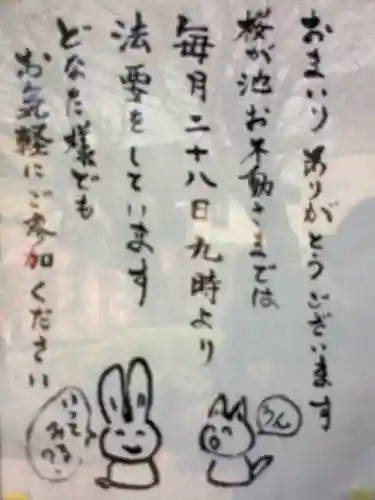 おまいり ありがとうございます
桜が池お不動さまでは
毎月二十八日九時より
法要をしています
どなた様でも
お気軽にご参加ください
うん
いって
みる？